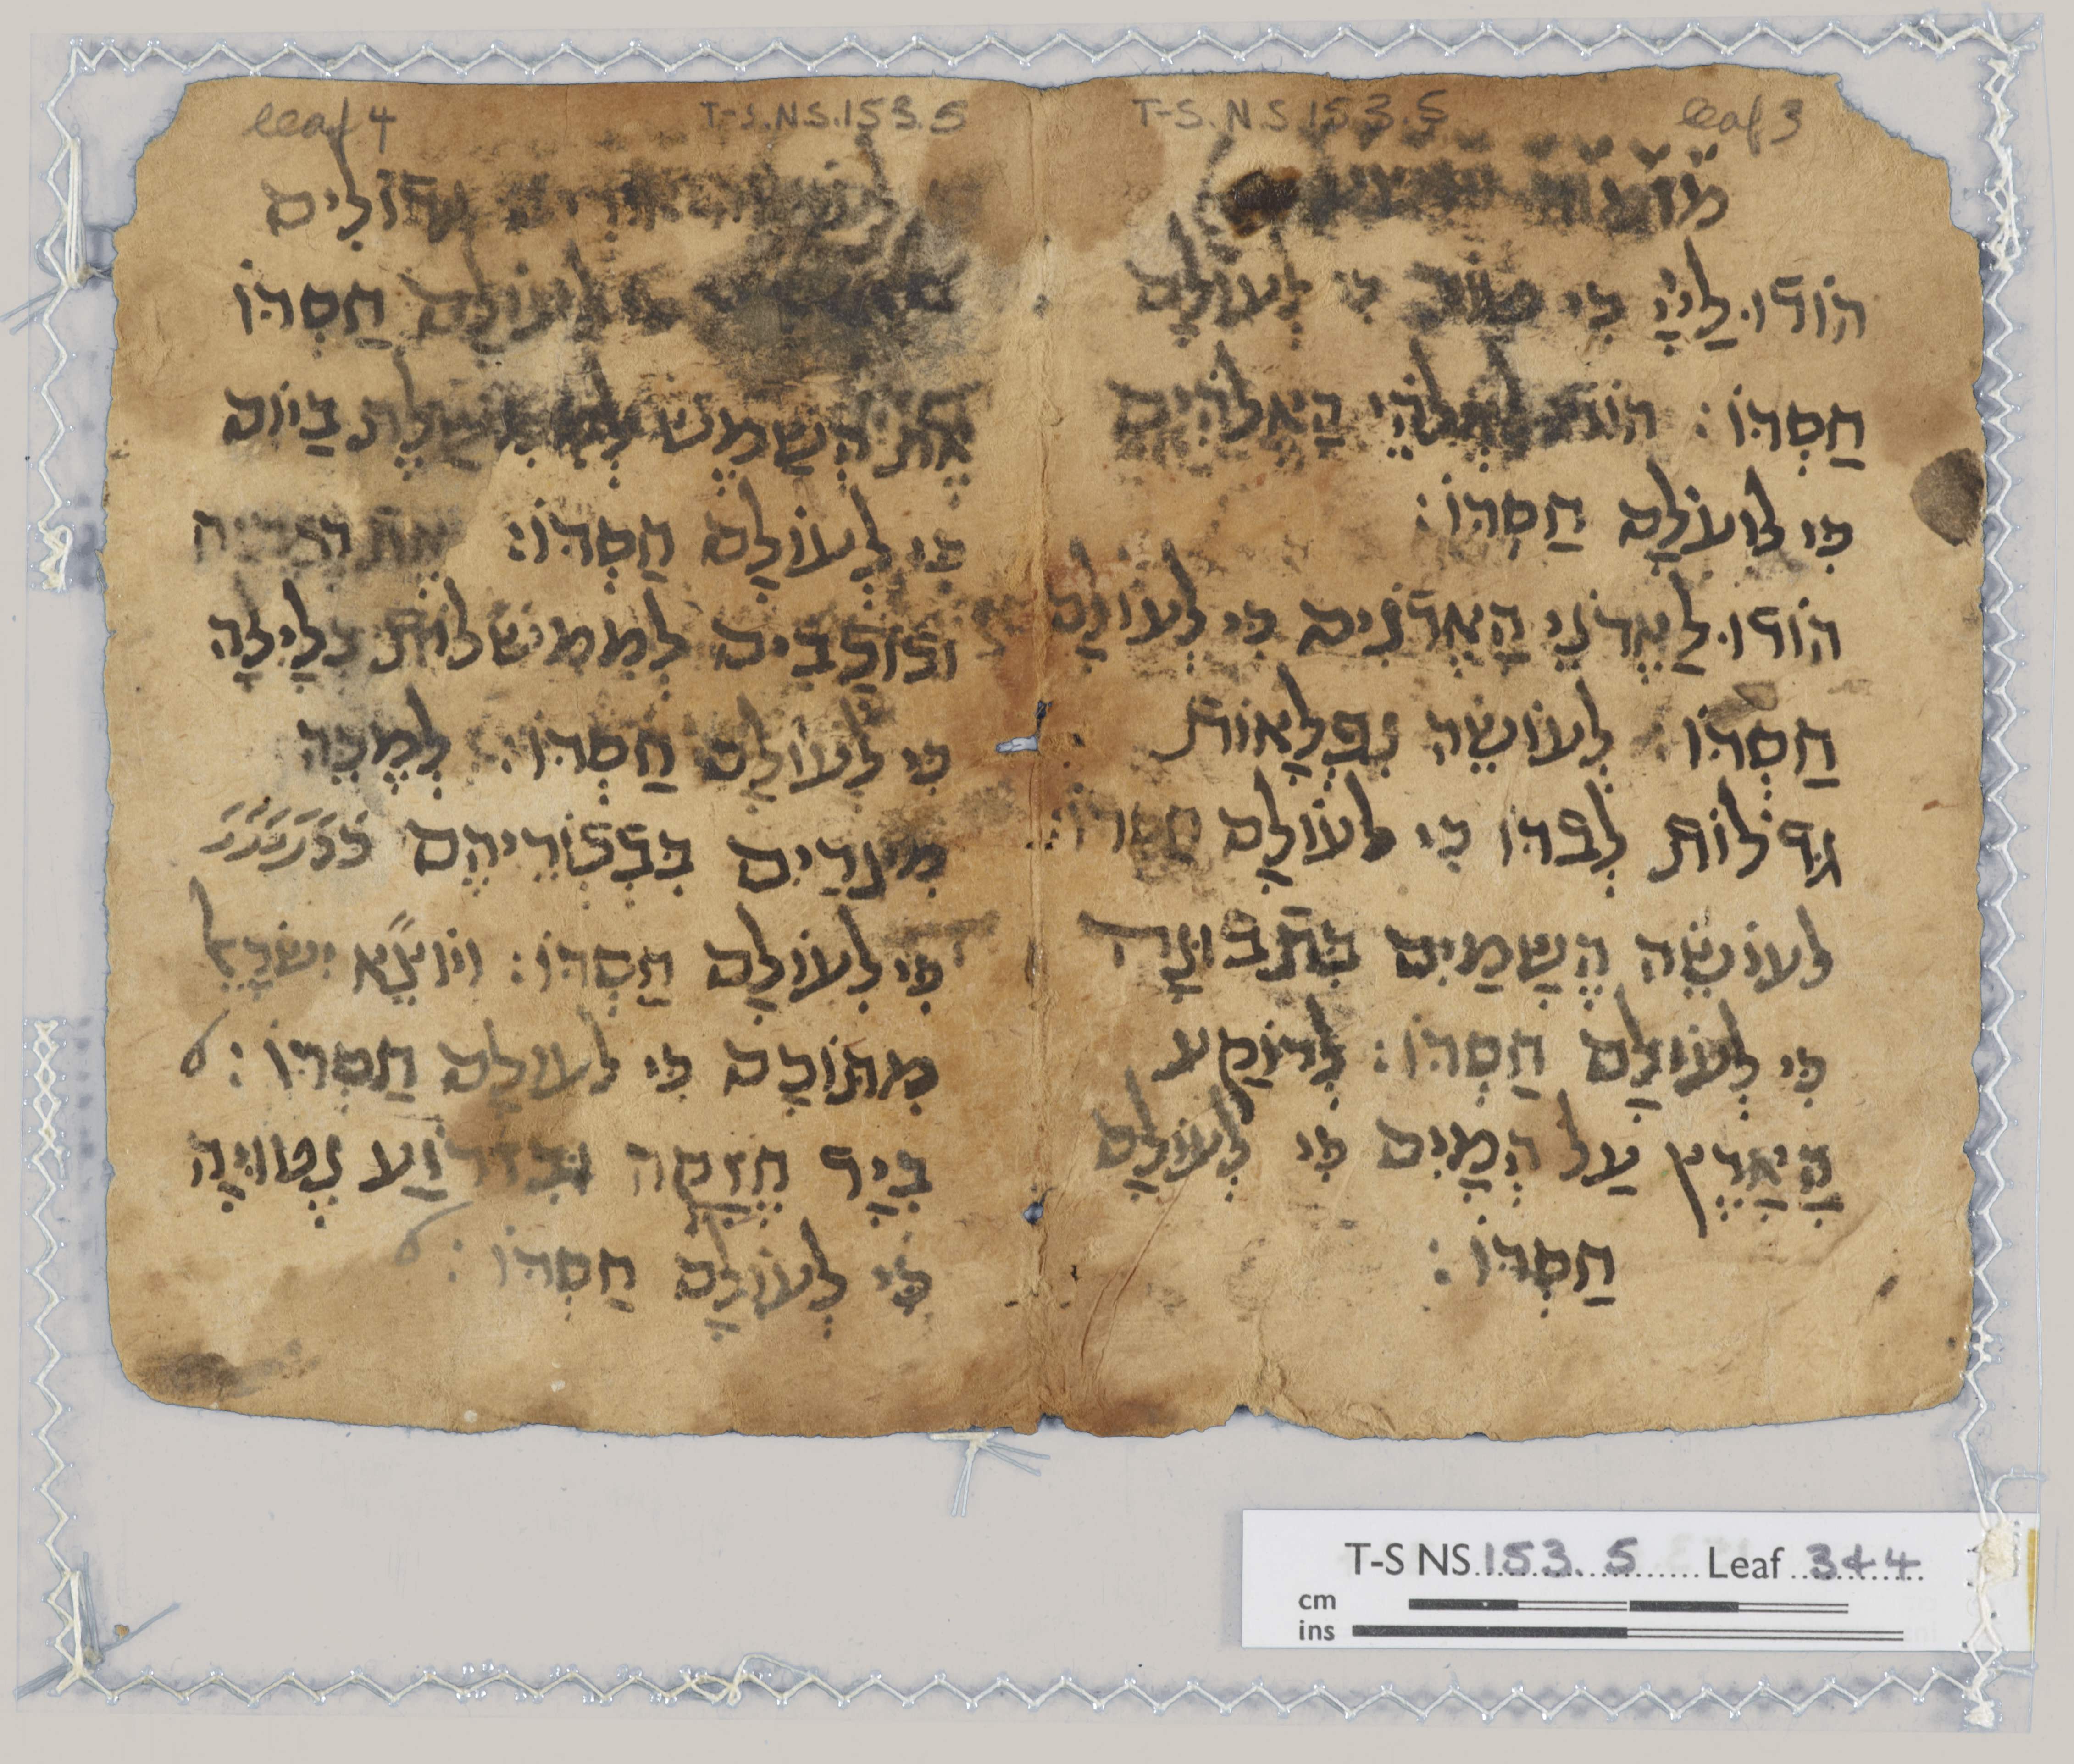 leaf 3
T-S.N.S.153.5
הוֹדוּ לַייָ כִּי טוֹב כִּי לְעוֹלָם
חַסְדּוֹ: הוֹדוּ לֵאלֹהֵי הַאֱלֹהִים
כִּי לְעוֹלָם חַסְדּוֹ:
הוֹדוּ לַאֲדֹנֵי הָאֲדֹנִים כִּי לְעוֹלָם
חַסְדּוֹ: לְעוֹשֵׂה נִפְלָאוֹת
גְּדֹלוֹת לְבדוֹ כִּי לְעוֹלָם חסדוֹ:
לעוֹשֵׂה הֲשָׁמַיִם בִּתְבוּנָה
כִּי לְעוֹלָם חַסְדּוֹ: לְרוֹקַע
הָאָרֶץ עַל הַמָיִם כִּי לְעוֹלָם
חַסְדּוֹ:
T-S.N.S.153.5
leaf 4
גדֹלִים
לְעוֹלָם חַסְדּוֹ
אֶת הַשֶׁמֶשׁ לְמֶמְשֶׁלֶת בַּיוֹם
כִּי לְעוֹלָם חַסְדּוֹ: את הירח
וכוֹכָבִים לְמִמְשְׁלוֹת בַּלָיְלָה
כִּי לְעוֹלָם חַסְדּוֹ: לְמַכֵּה
מִצְרַיִם בִּבְכוֹרֵיהֶם
כִּי לְעוֹלָם חַסְדּוֹ: וַיוֹצֵא יִשְׂרָאֵל
מִתּוֹכָם כִּי לְעוֹלָם חַסְדּוֹ:
בְּיָד חֲזָקָה וּבִזְרוֹעַ נְטוּיָה
כִּי לְעוֹלָם חַסְדּוֹ:
T-S NS 153.5 Leaf 3 & 4
cm
ins